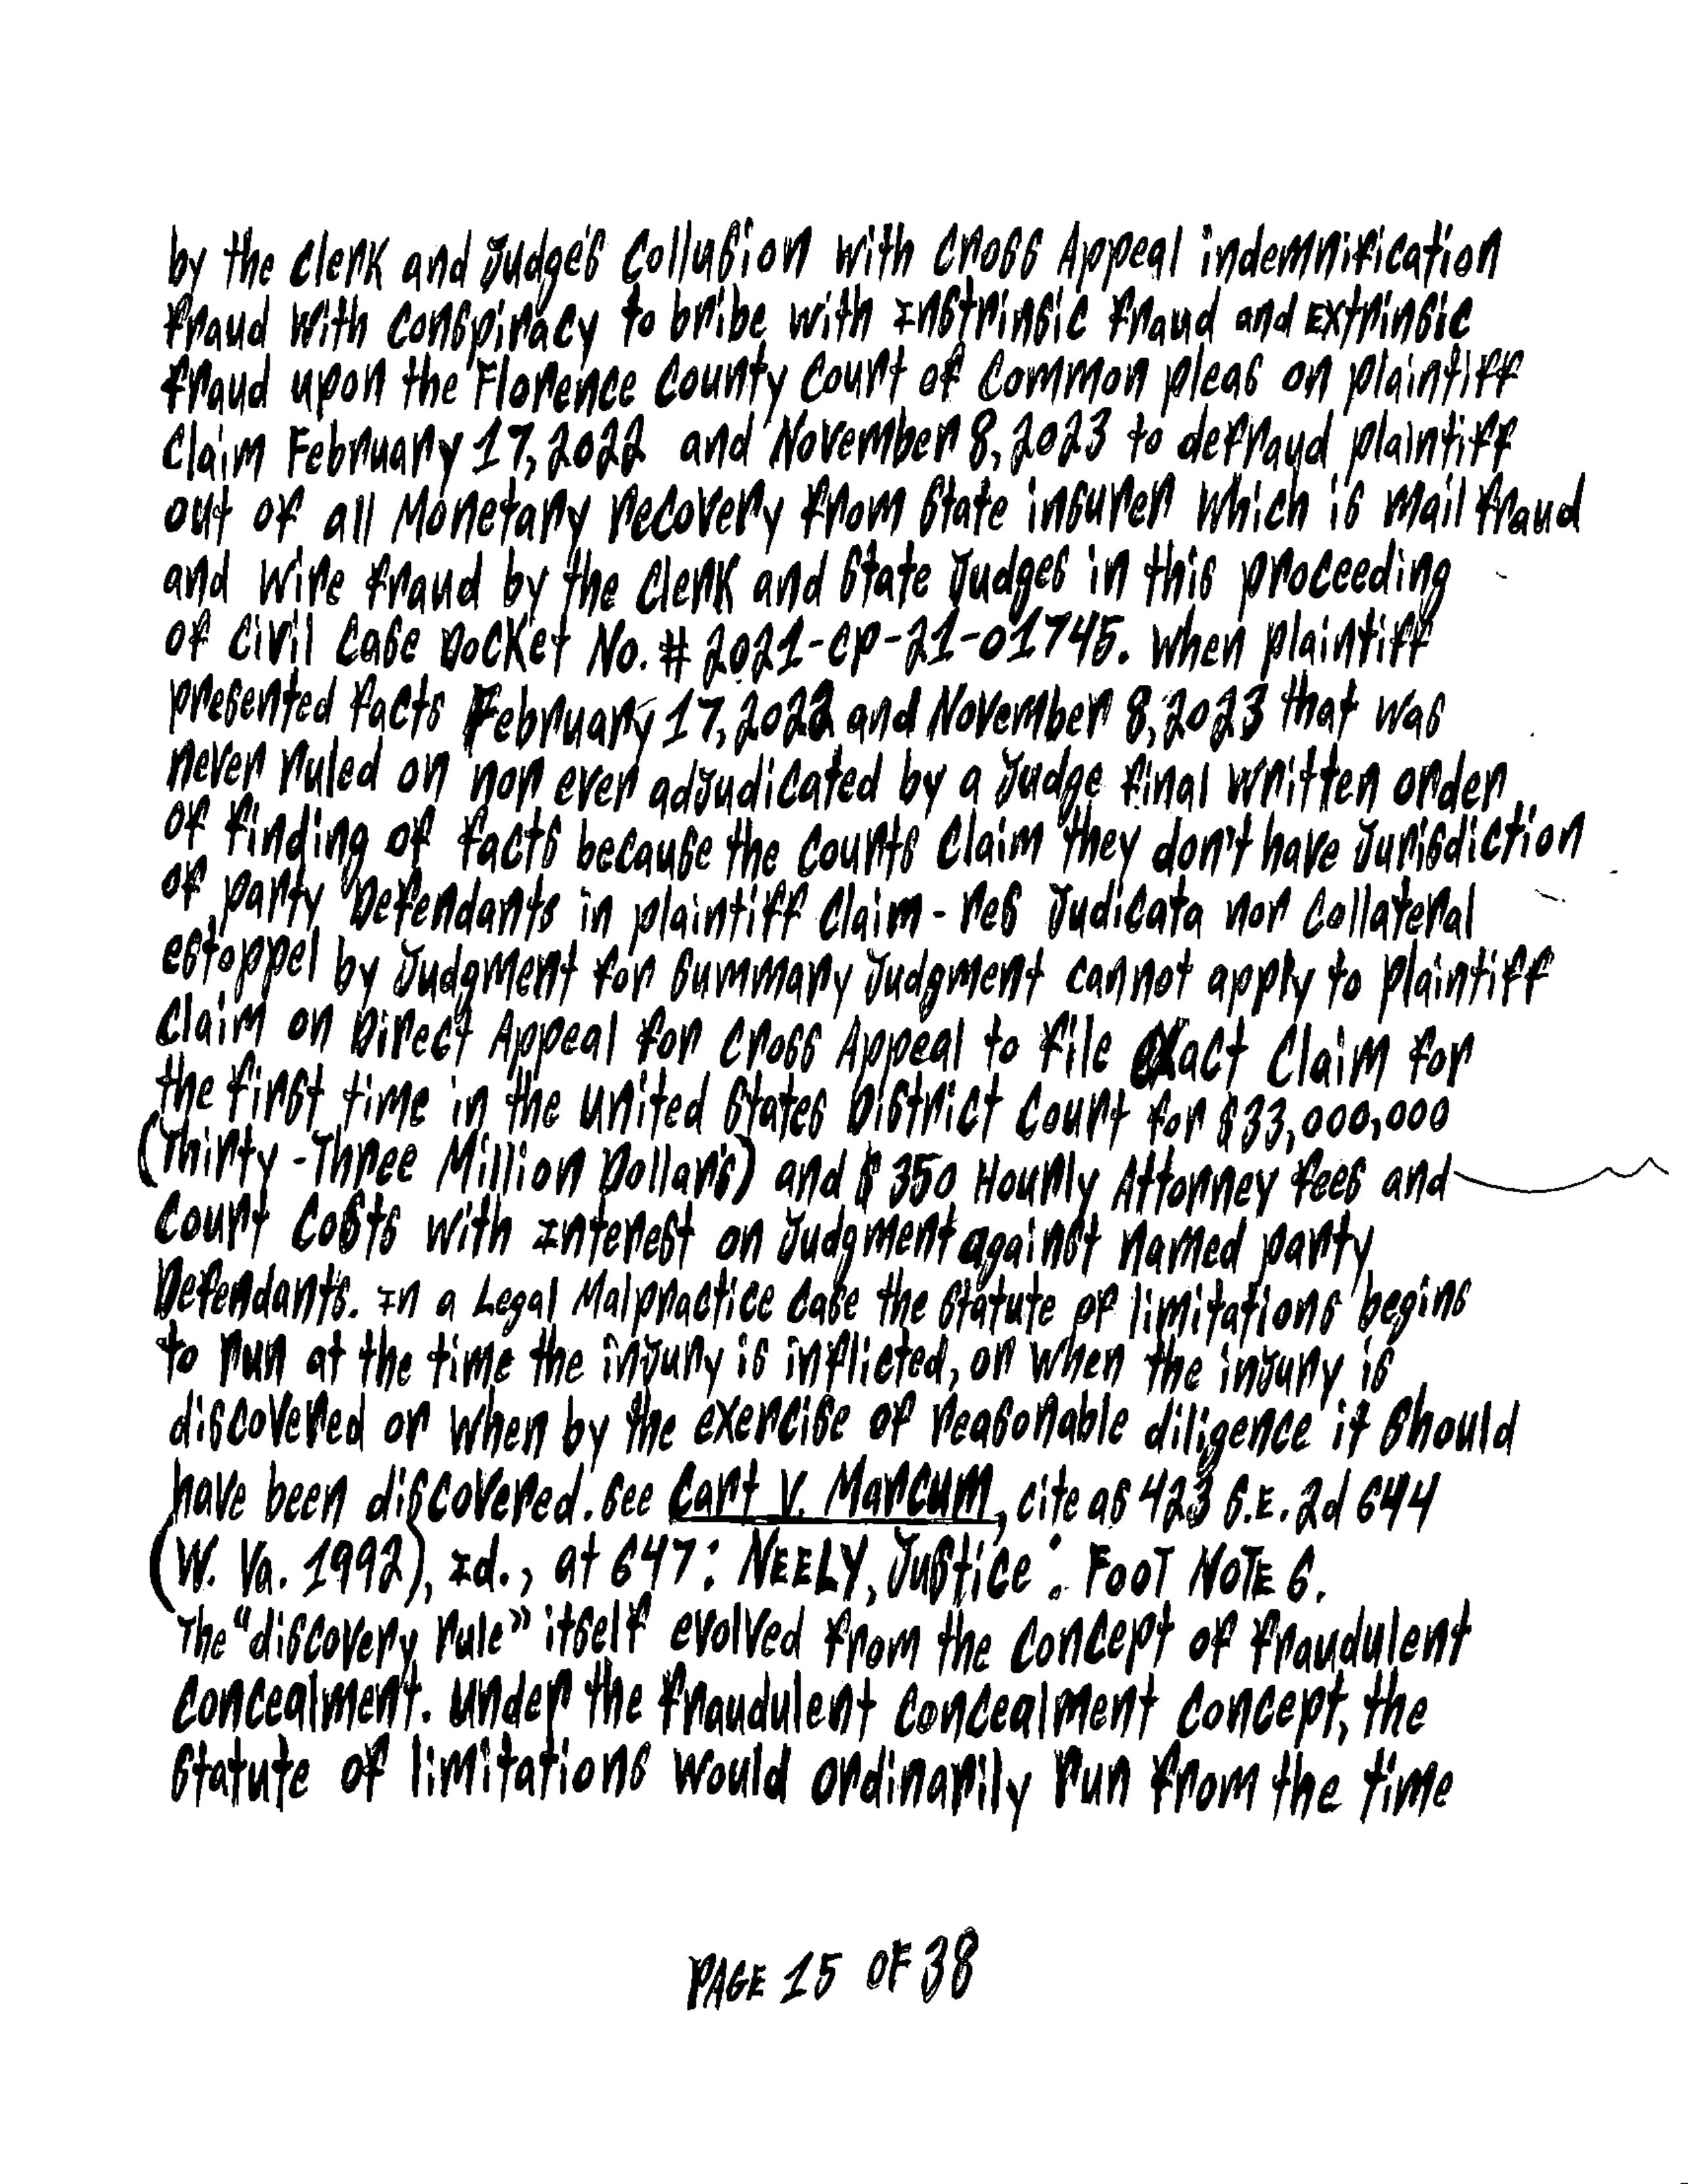 by the Clerk and Judge's Collusion with Cross Appeal indemnification
fraud with conspiracy to bribe with Instrinsic fraud and Extrinsic
fraud upon the Florence County Court of Common pleas on plaintiff
Claim February 17, 2022 and November 8, 2023 to defraud plaintiff
out of all Monetary recovery from State insurer which is mail fraud
and wire fraud by the Clerk and State Judges in this proceeding
of Civil Case Docket No. # 2021-CP-21-01745. When plaintiff
presented facts February 17, 2022 and November 8, 2023 that was
never ruled on nor ever adjudicated by a Judge final written order
of finding of facts because the Courts Claim they don't have Jurisdiction
of party Defendants in plaintiff Claim - res Judicata nor Collateral
estoppel by Judgment for Summary Judgment cannot apply to plaintiff
Claim on Direct Appeal for Cross Appeal to file exact Claim for
the first time in the United States District Court for $33,000,000
(Thirty-Three Million Dollar's) and $350 Hourly Attorney fees and
Court Costs with Interest on Judgment against named party
Defendant's. In a Legal Malpractice case the statute of limitations begins
to run at the time the injury is inflicted, or when the injury is
discovered or when by the exercise of reasonable diligence it should
have been discovered. See Cart v. Marcum, cite as 423 S.E. 2d 644
(W. Va. 1992), Id., at 647: NEELY, Justice: FOOT NOTE 6.
The "discovery rule" itself evolved from the concept of fraudulent
concealment. Under the fraudulent concealment concept, the
statute of limitations would ordinarily run from the time
PAGE 15 OF 38